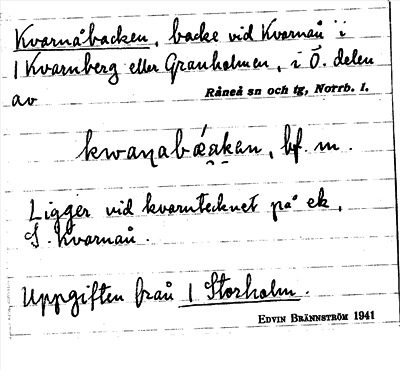 Kvarnåbacken, backe vid Kvarnån i
1 Kvarnberg eller Granholmen, i Ö. delen
av Råneå sn och tg, Norrb. l.
kwaṇabǽakan, bf. m.
Ligger vid kvarntecknet på ek,
S. Kvarnån.
Uppgiften från 1 Storholm.
EDVIN BRÄNNSTRÖM 1941